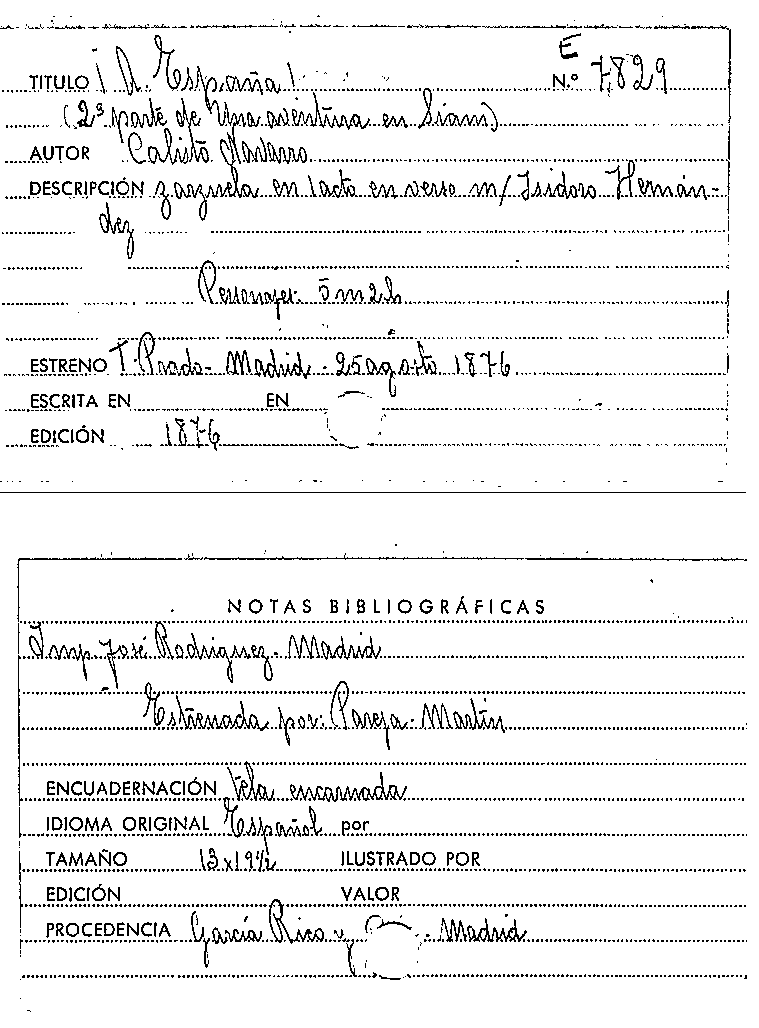 E
TITULO ¡ A. España! N.º 7,829
(2ª parte de Una aventura en Siam)
AUTOR Calisto Navarro
DESCRIPCIÓN zarzuela en 1 acto en verso m/ Isidoro Hernán-
dez
Personajes. 5 m 2 h
ESTRENO T. Prado - Madrid - 25 agosto 1876
ESCRITA EN EN
EDICIÓN 1876
NOTAS BIBLIOGRÁFICAS
Imp. José Rodriguez. Madrid
Estrenada por: Pareja - Martín
ENCUADERNACIÓN tela encarnada
IDIOMA ORIGINAL Español por
TAMAÑO 13 x 19½ ILUSTRADO POR
EDICIÓN VALOR
PROCEDENCIA García Rico y . Madrid